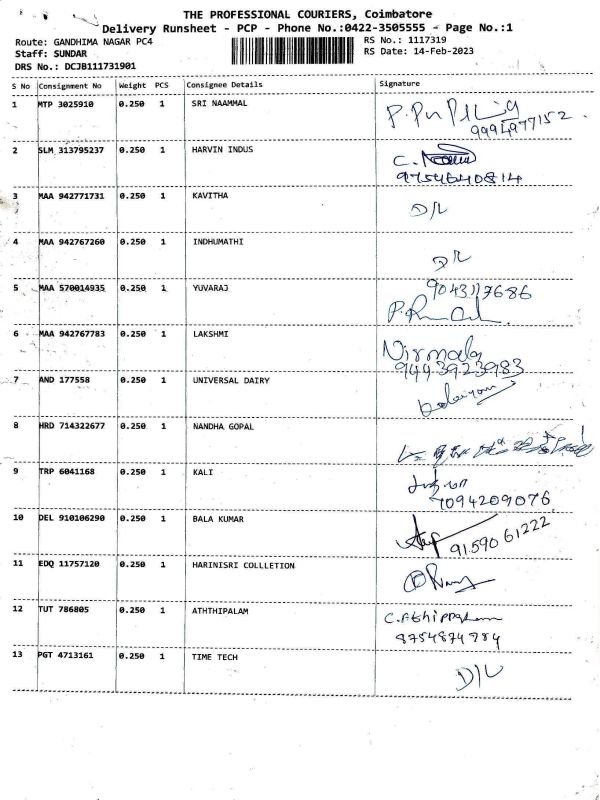 THE PROFESSIONAL COURIERS, Coimbatore
Delivery Runsheet - PCP - Phone No.:0422-3505555 - Page No.:1
Route: GANDHIMA NAGAR PC4
RS No.: 1117319
Staff: SUNDAR
RS Date: 14-Feb-2023
DRS No.: DCJB111731901
S No Consignment No Weight PCS Consignee Details Signature
1 MTP 3025910 0.250 1 SRI NAAMMAL
9994977152
2 SLM 313795237 0.250 1 HARVIN INDUS C.
9754640814
3 MAA 942771731 0.250 1 KAVITHA D/L
4 MAA 942767260 0.250 1 INDHUMATHI D/L
5 MAA 570014935 0.250 1 YUVARAJ 9043117686
6 MAA 942767783 0.250 1 LAKSHMI Nirmala
9443923983
7 AND 177558 0.250 1 UNIVERSAL DAIRY
8 HRD 714322677 0.250 1 NANDHA GOPAL
9 TRP 6041168 0.250 1 KALI
7094209076
10 DEL 910106290 0.250 1 BALA KUMAR 9159061222
11 EDQ 11757120 0.250 1 HARINISRI COLLLETION
12 TUT 786805 0.250 1 ATHTHIPALAM C.Athippalam
8754874784
13 PGT 4713161 0.250 1 TIME TECH D/L